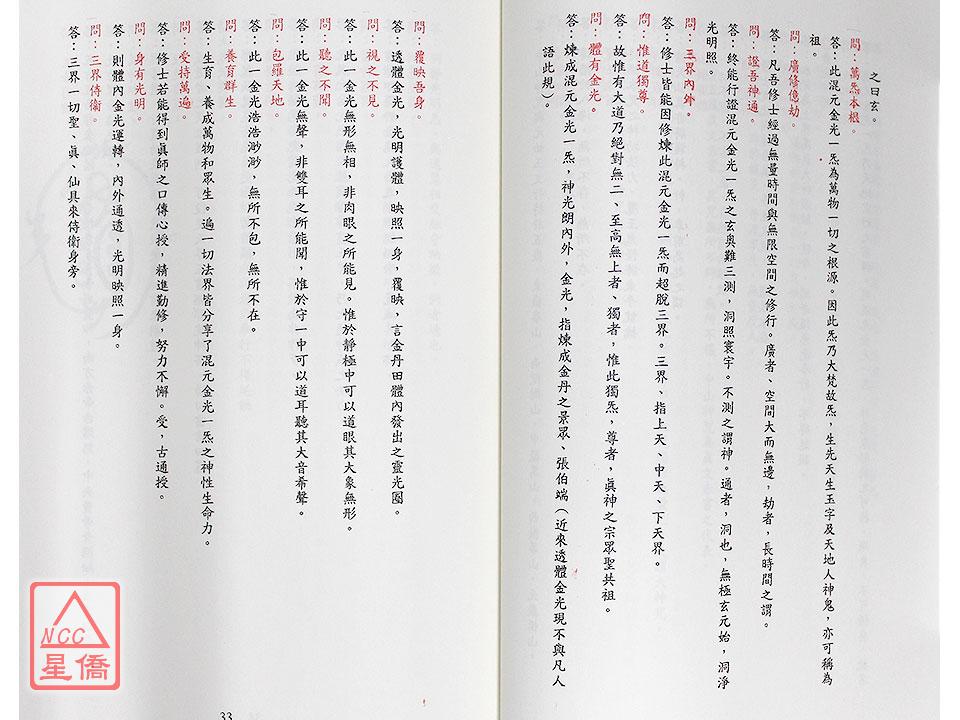 之曰玄。
問：萬炁本根。
答：此混元金光一炁為萬物一切之根源。因此炁乃大梵故炁，生先天生玉字及天地人神鬼，亦可稱為
祖。
問：廣修億劫。
答：凡吾修士經過無量時間與無限空間之修行。廣者、空間大而無邊，劫者，長時間之謂。
問：證吾神通。
答：終能行證混元金光一炁之玄奧難三測，洞照寰宇。不測之謂神。通者，洞也，無極玄元始，洞淨
光明照。
問：三界內外。
答：修士皆能因修煉此混元金光一炁而超脫三界。三界、指上天、中天、下天界。
問：惟道獨尊。
答：故惟有大道乃絕對無二、至高無上者、獨者，惟此獨炁，尊者，真神之宗眾聖共祖。
問：體有金光。
答：煉成混元金光一炁，神光朗內外，金光，指煉成金丹之景眾、張伯端（近來透體金光現不與凡人
語此規）。
問：覆映吾身。
答：透體金光，光明護體，映照一身，覆映，言金丹田體內發出之靈光圈。
問：視之不見。
答：此一金光無形無相，非肉眼之所能見。惟於靜極中可以道眼其大象無形。
問：聽之不聞。
答：此一金光無聲，非雙耳之所能聞，惟於守一中可以道耳聽其大音希聲。
問：包羅天地。
答：此一金光浩浩渺渺，無所不包，無所不在。
問：養育群生。
答：生育、養成萬物和眾生。遍一切法界皆分享了混元金光一炁之神性生命力。
問：受持萬遍。
答：修士若能得到真師之口傳心授，精進勤修，努力不懈。受，古通授。
問：身有光明。
答：則體內金光運轉，內外通透，光明映照一身。
問：三界侍衛。
答：三界一切聖、真、仙具來侍衛身旁。
33
NCC
星僑